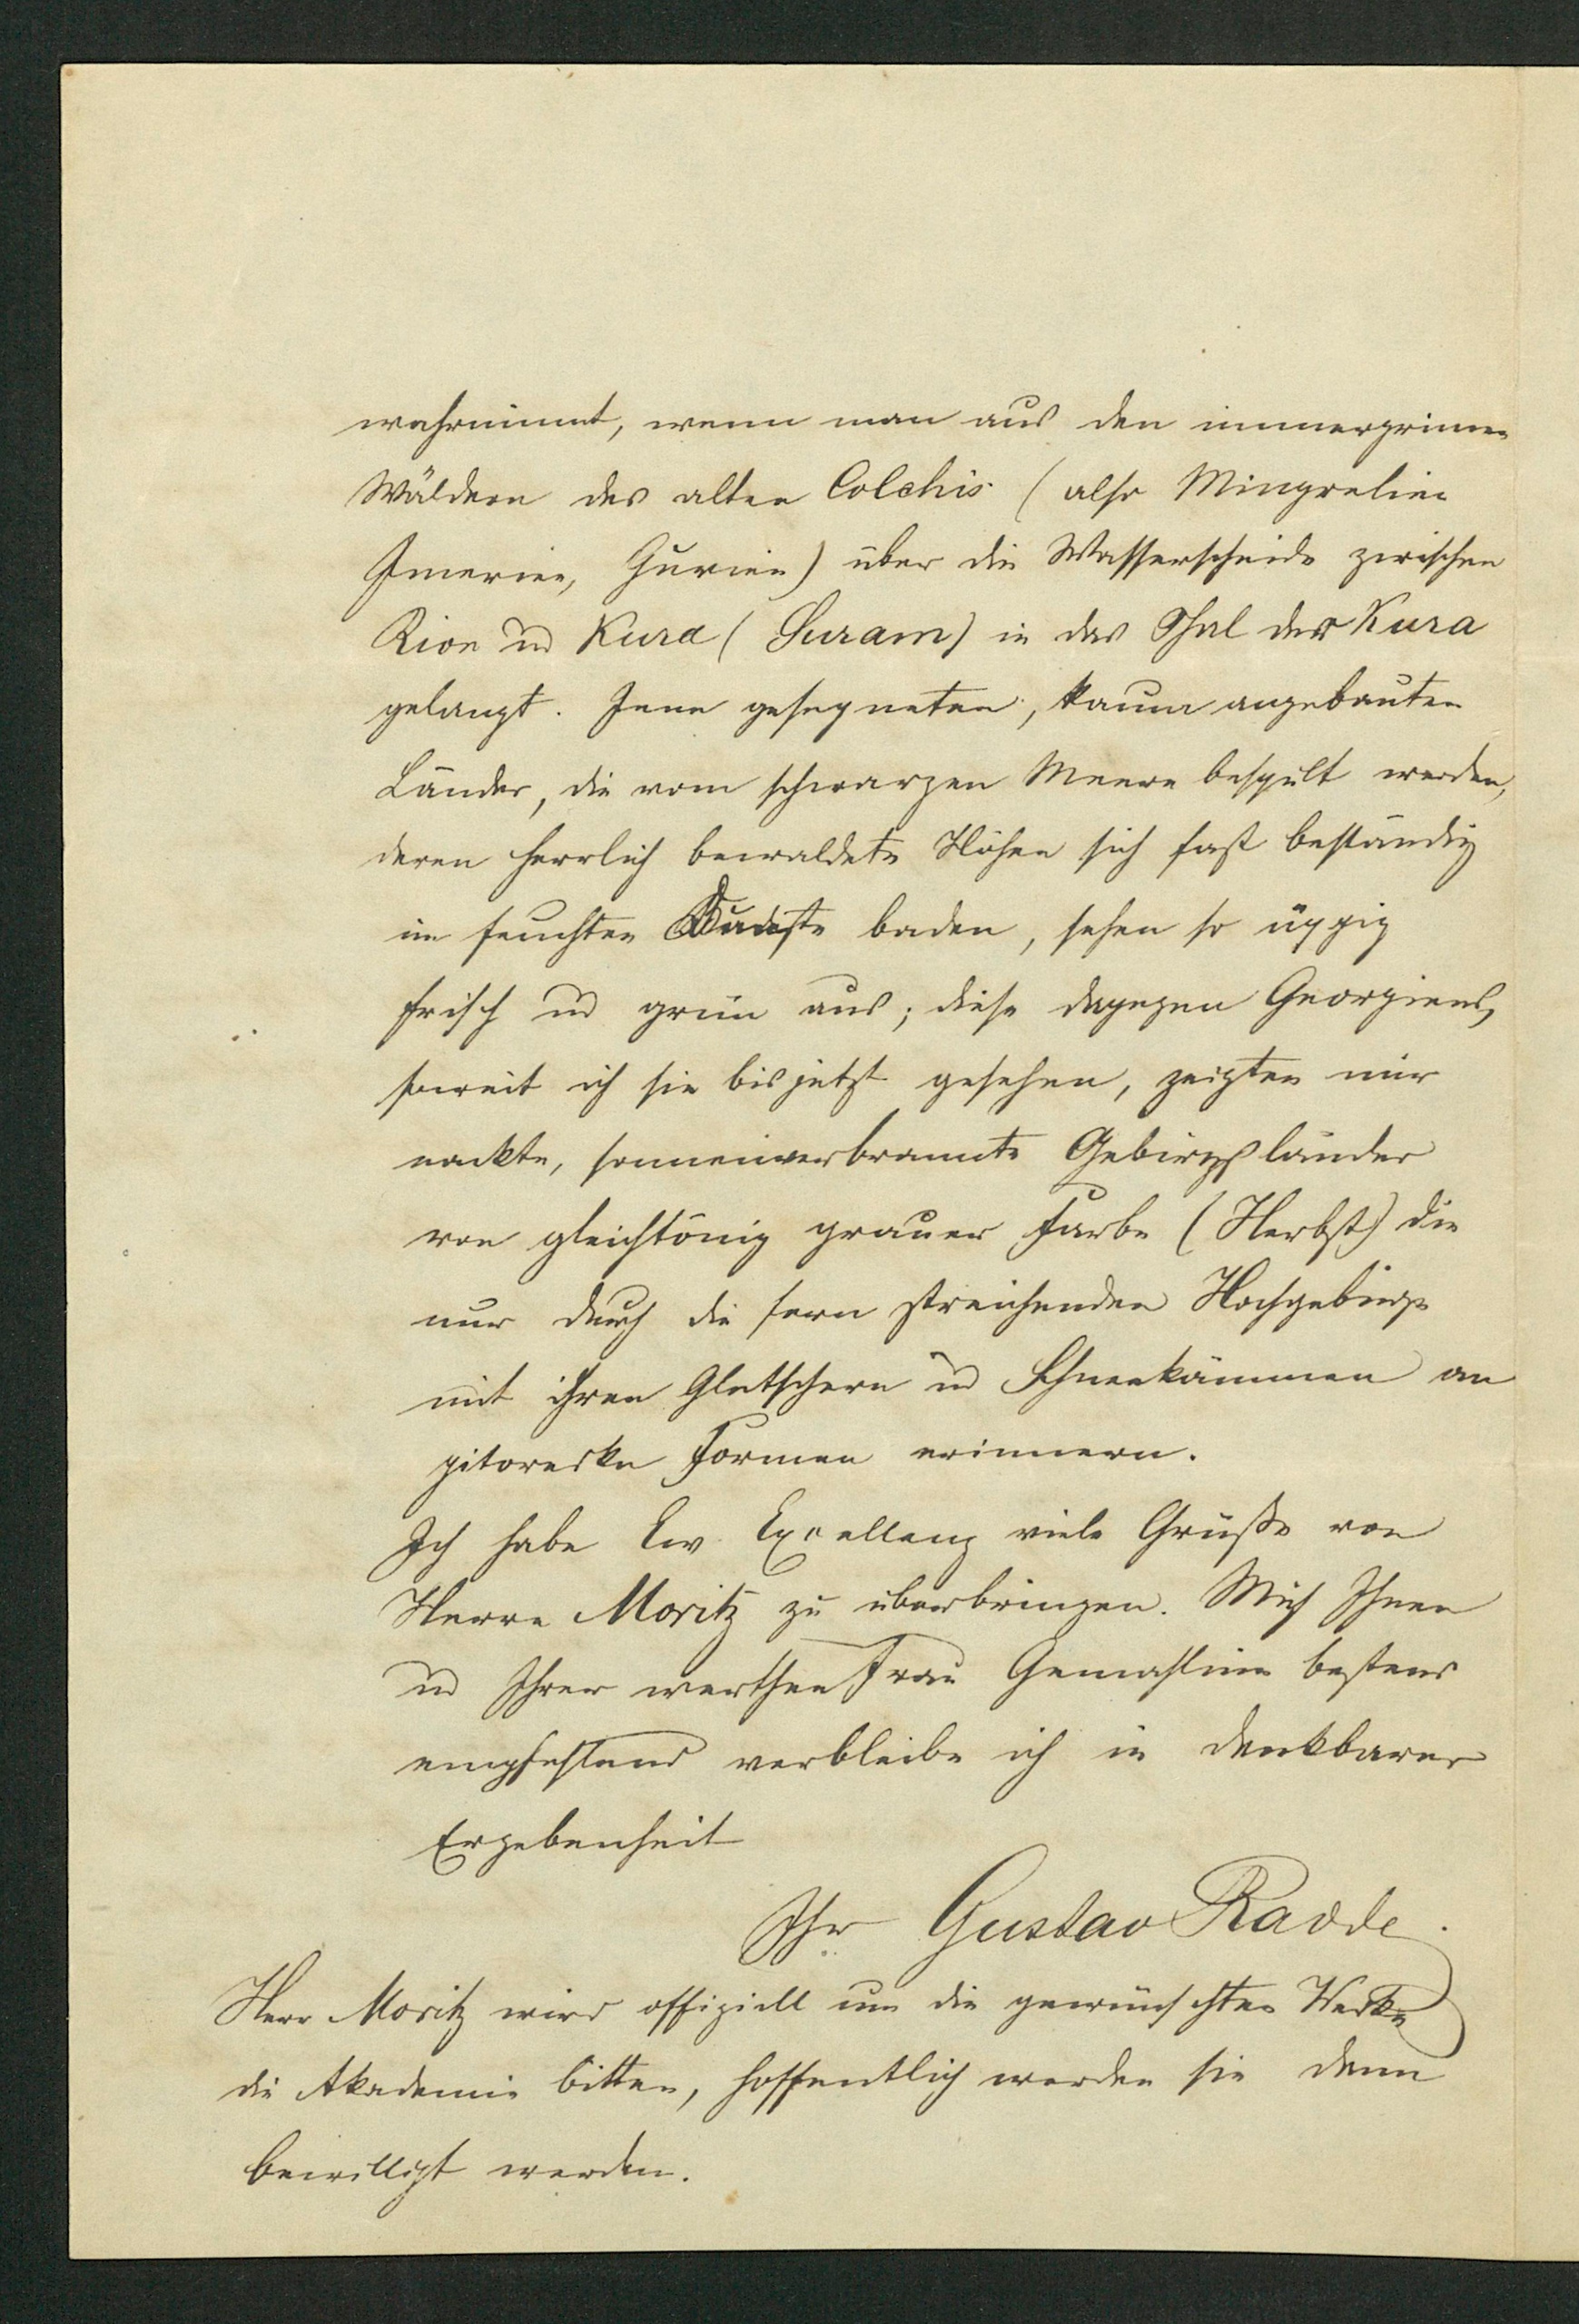 wahrnimmt, wenn man aus den immergrünen
Wäldern des alten Colchis (also Mingrelien
Imerien, Gurien) über die Wasserscheide zwischen
Rion und Kura (Suram) in das Thal der Kura
gelangt. Jene gesegneten, kaum angebauten
Länder, die vom schwarzen Meere bespült werden,
deren herrlich bewaldete Höhen sich fast beständig
im feuchten Dunste baden, sehen so üppig
frisch und grün aus; diese dagegen Georgiens,
soweit ich sie bis jetzt gesehen, zeigten mir
nackte, sonnenverbrannte Gebirgsländer
von gleichtönig grauer Farbe (Herbst) die
nur durch die fern streichenden Hochgebirge
mit ihren Gletschern und Schneekämmen an
pitoreske Formen erinnern.
Ich habe Ew. Excellenz viele Grüße von
Herrn Moritz zu überbringen. Mich Ihnen
und Ihrer werthen Frau Gemahlinn bestens
empfehlend verbleibe ich in dankbarer
Ergebenheit
Ihr Gustav Radde.
Herr Moritz wird offiziell um die gewünschten Werke
die Akademie bitten, hoffentlich werden sie denn
bewilligt werden.